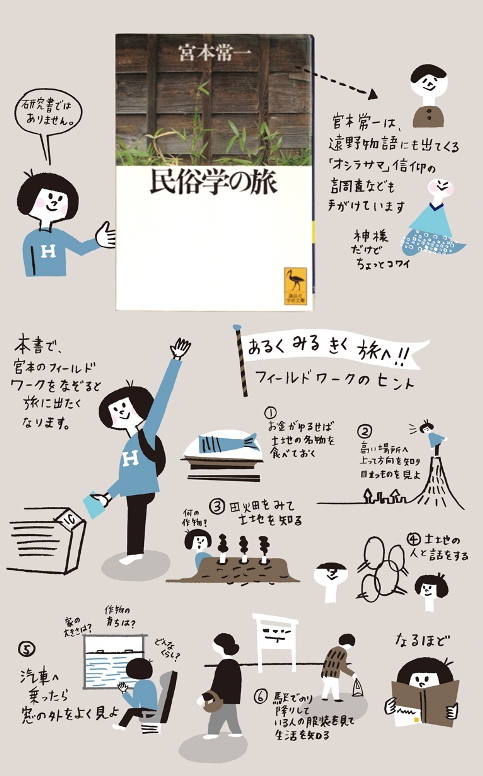 宮本常一
民俗学の旅
講談社
学術文庫
研究書では
ありません。
宮本常一は、
遠野物語にも出てくる
「オシラサマ」信仰の
調査なども
手がけています
神様
だけど
ちょっとコワイ
H
本書で、
宮本のフィールド
ワークをなぞると
旅に出たく
なります。
H
IC
あるくみるきく旅へ!!
フィールドワークのヒント
①
お金がゆるせば
土地の名物を
食べておく
②
高い場所へ
上って方向を知り
目立つものを見よ
何の
作物?
③田畑をみて
土地を知る
④土地の
人と話をする
⑤
汽車へ
乗ったら
窓の外をよく見よ
家の
大きさは?
作物の
育ちは?
どんな
くらし?
⑥駅でのり
降りして
いる人の服装を見て
生活を知る
なるほど